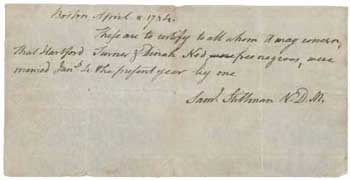 Boston April 8. 1784.
These are to certify to all whom it may concern,
that Hartford Turner & Dinah free negroes, were
married Jan.y 4 the present year by me
Saml. Stillman V. D. M.